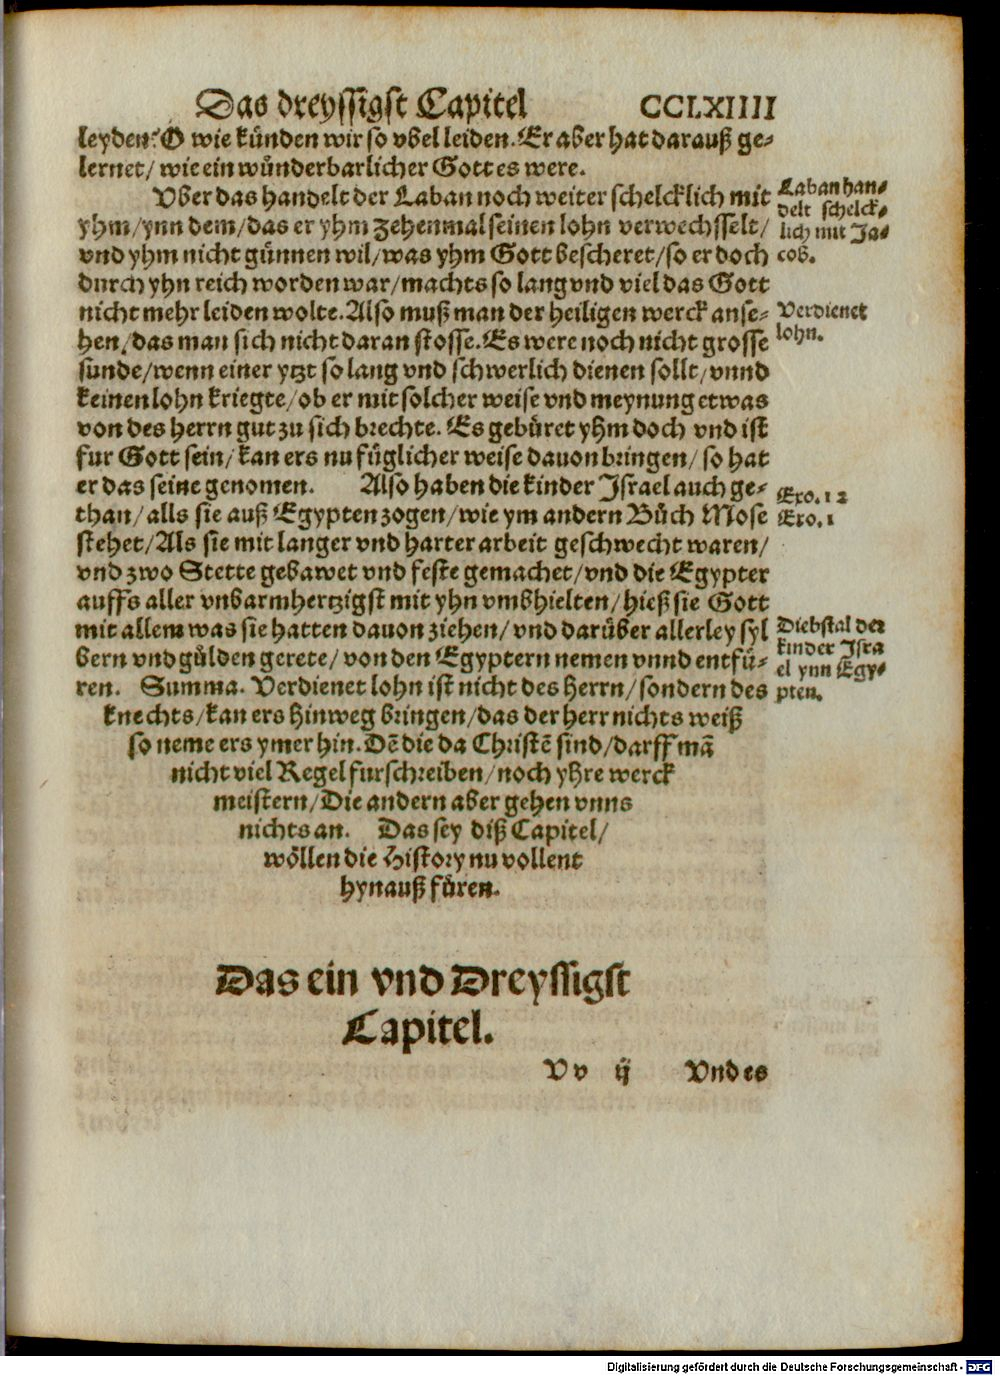 Das dreyssigst Capitel CCLXIIII
leyden? O wie künden wir so vbel leiden. Er aber hat darauß ge-
lernet/ wie ein wünderbarlicher Gott es were.
Vber das handelt der Laban noch weiter schelcklich mit
yhm/ ynn dem/ das er yhm zehenmal seinen lohn verwechsselt/
vnd yhm nicht günnen wil/ was yhm Gott bescheret/ so er doch
durch yhn reich worden war/ machts so lang vnd viel das Gott
nicht mehr leiden wolte. Also muß man der heiligen werck anse-
hen/ das man sich nicht daran stosse. Es were noch nicht grosse
sunde/ wenn einer ytzt so lang vnd schwerlich dienen sollt/ vnnd
keinen lohn kriegte/ ob er mit solcher weise vnd meynung etwas
von des herrn gut zu sich brechte. Es gebüret yhm doch vnd ist
fur Gott sein/ kan ers nu füglicher weise dauon bringen/ so hat
er das seine genomen. Also haben die kinder Israel auch ge-
than/ alls sie auß Egypten zogen/ wie ym andern Bůch Mose
stehet/ Als sie mit langer vnd harter arbeit geschwecht waren/
vnd zwo Stette gebawet vnd feste gemachet/ vnd die Egypter
auffs aller vnbarmhertzigst mit yhn vmbhielten/ hieß sie Gott
mit allem was sie hatten dauon ziehen/ vnd darüber allerley syl
bern vnd gülden gerete/ von den Egyptern nemen vnnd entfü-
ren. Summa. Verdienet lohn ist nicht des herrn/ sondern des
knechts/ kan ers hinweg bringen/ das der herr nichts weiß
so neme ers ymer hin. Dē die da Christē sind/ darff mā
nicht viel Regel furschreiben/ noch yhre werck
meistern/ Die andern aber gehen vnns
nichts an. Das sey diß Capitel/
wöllen die History nu vollent
hynauß füren.
Laban han-
delt schelck-
lich mit Ja-
cob.
Verdienet
lohn.
Exo. 12
Exo. 1
Diebstal der
kinder Isra
el ynn Egy-
pten.
Das ein vnd Dreyssigst
Capitel.
Vv ij Vnd es
Digitalisierung gefördert durch die Deutsche Forschungsgemeinschaft - DFG